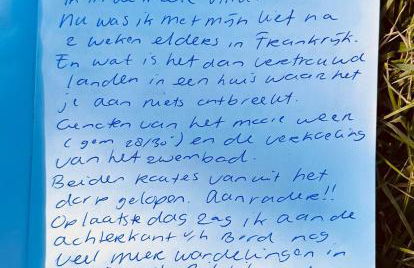 Nu was ik met mijn lief na
2 weken elders in Frankrijk.
En wat is het dan vertrouwd
landen in een huis waar het
je aan niets ontbreekt.
Genoten van het mooie weer
(gem 28/30°) en de verkoeling
van het zwembad.
Beide routes vanuit het
dorp gelopen. Aanrader!!
Op laatste dag zag ik aan de
achterkant v/h Bord nog
veel meer wandelingen in